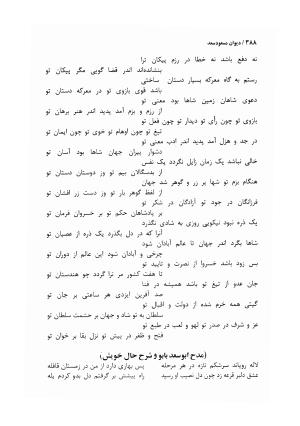 ۳۸۸ / دیوان مسعود سعد
نه دفع باشد نه خطا در رزم پیکان ترا
بنشانده‌اند اندر قضا گویی مگر پیکان تو
رستم به گاه معرکه بسیار دستان ساختی
باشد قوی بازوی تو در معرکه دستان تو
دعوی شاهان زمین شاها بود معنی تو
از رزم و بزم آمد پدید اندر هنر برهان تو
بازوی تو چون رأی تو دیدار تو چون لفظ تو
تیغ تو چون اوهام تو خوی تو چون ایمان تو
در جد و هزل آمد پدید اندر ادب معنی تو
دشوار پیران جهان شاها بود آسان تو
خالی نباشد یک زمان زایل نگردد یک نفس
از بدسگالان بیم تو وز دوستان دستان تو
هنگام بزم تو شها بر زر و گوهر شد جهان
از لفظ گوهر بار تو وز دست زر افشان تو
فرزانگان در جود تو آزادگان در شکر تو
بر پادشاهان حکم تو بر خسروان فرمان تو
یک ذره نبود نیکویی روزی به شادی نگذرد
آنرا که در دل بگذرد یک ذره از عصیان تو
شاها بگرد اندر جهان تا عالم آبادان شود
چرخی و آبادان شود این عالم از دوران تو
بس زود باشد خسروا از نصرت و تایید تو
تا هفت کشور مر ترا گردد چو هندستان تو
جان عدو از تیغ تو باشد همیشه در فنا
صد آفرین ایزدی هر ساعتی بر جان تو
گیتی همه خرم شده از دولت و اقبال تو
سلطان به تو شاد و جهان بر حشمت سلطان تو
عز و شرف در صدر تو لهو و لعب در طبع تو
فتح و ظفر در پیش تو نزل بقا بر خوان تو
(مدح ابوسعد بابو و شرح حال خویش)
لاله رویاند سرشکم تازه در هر مرحله پس بماندی دارد از من در زمستان قافله
عشق دلبر قرعه زد چون دل نصیب او رسید راه پیشش بر گرفتم دل بدو کردم یله